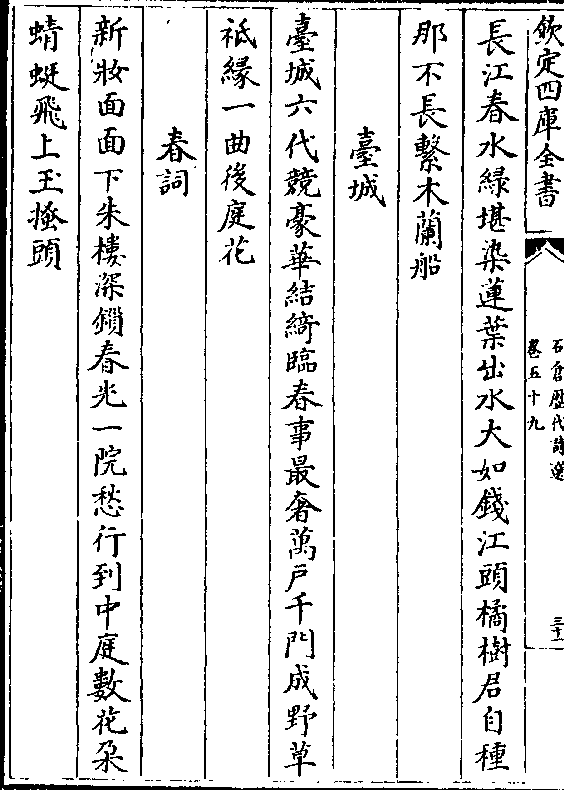 欽定四庫全書
石倉歴代詩選
卷五十九
三十
長江春水緑堪染蓮葉出水大如錢江頭橘樹君自種
那不長繫木蘭船
臺城
臺城六代競豪華結綺臨春事最奢萬戸千門成野草
祇緣一曲後庭花
春詞
新妝面面下朱樓深鎻春光一院愁行到中庭數花朶
蜻蜓飛上玉搔頭